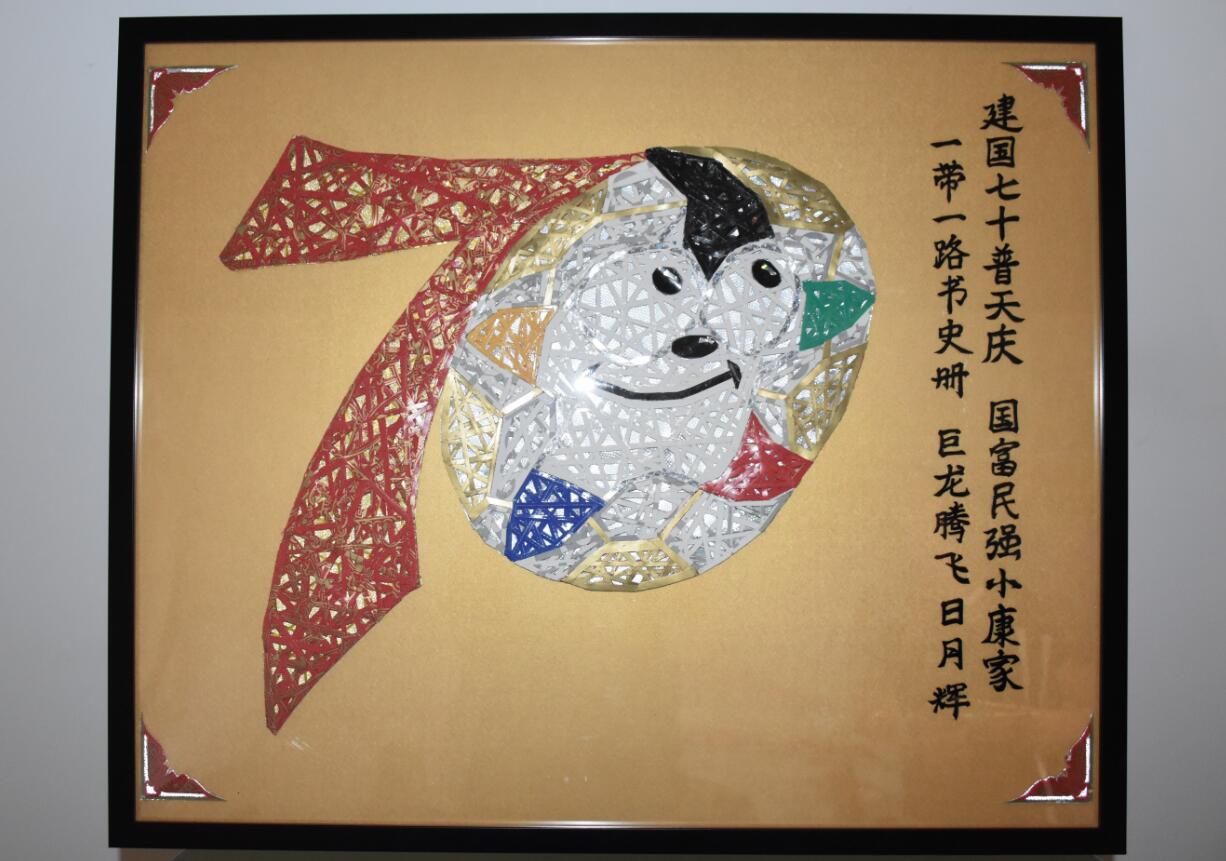 建国七十普天庆 国富民强小康家
一带一路书史册 巨龙腾飞日月辉